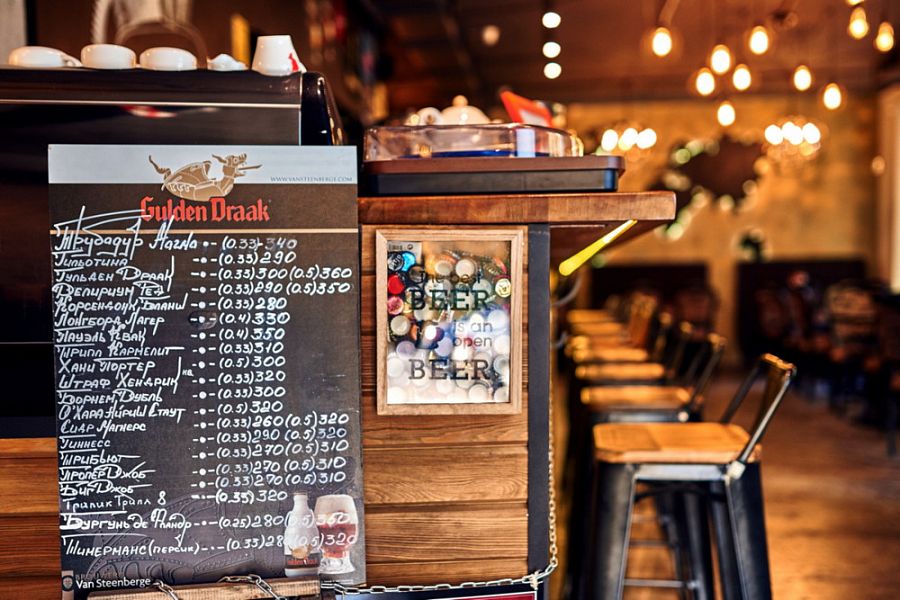 WWW.VANSTEENBERGE.COM
Gulden Draak
Трубадур Магма -•- (0.33)-340
Гильотина -•- (0.33) 290
Гульден Драак -•- (0.33) 300 (0.5) 360
Делириум Тр. -•- (0.33) 290 (0.5) 350
Корсендонк Бланш -•- (0.33) 280
Лонгборд Лагер -•- (0.4) 330
Пауэль Квак -•- (0.4) 350
Трипл Кармелит -•- (0.33) 310
Хани Портер -•- (0.5) 300
Штраф Хендрик кв. -•- (0.33) 320
Ворнем Дубль -•- (0.33) 300
О'Хара Айриш Стаут -•- (0.5) 320
Сидр Магнерс -•- (0.33) 260 (0.5) 320
Гиннесс -•- (0.33) 290 (0.5) 320
Трибьют -•- (0.33) 270 (0.5) 310
Пропер Джоб -•- (0.33) 270 (0.5) 310
Биг Джоб -•- (0.33) 270 (0.5) 310
Трипик Трипл 8 -•- (0.33) 320
Бургунь де Фландр --•- (0.25) 280 (0.5) 360
Тиммерманс (персик)--•-- (0.33) 280 (0.5) 320
Van Steenberge
BEER
is an
open
BEER